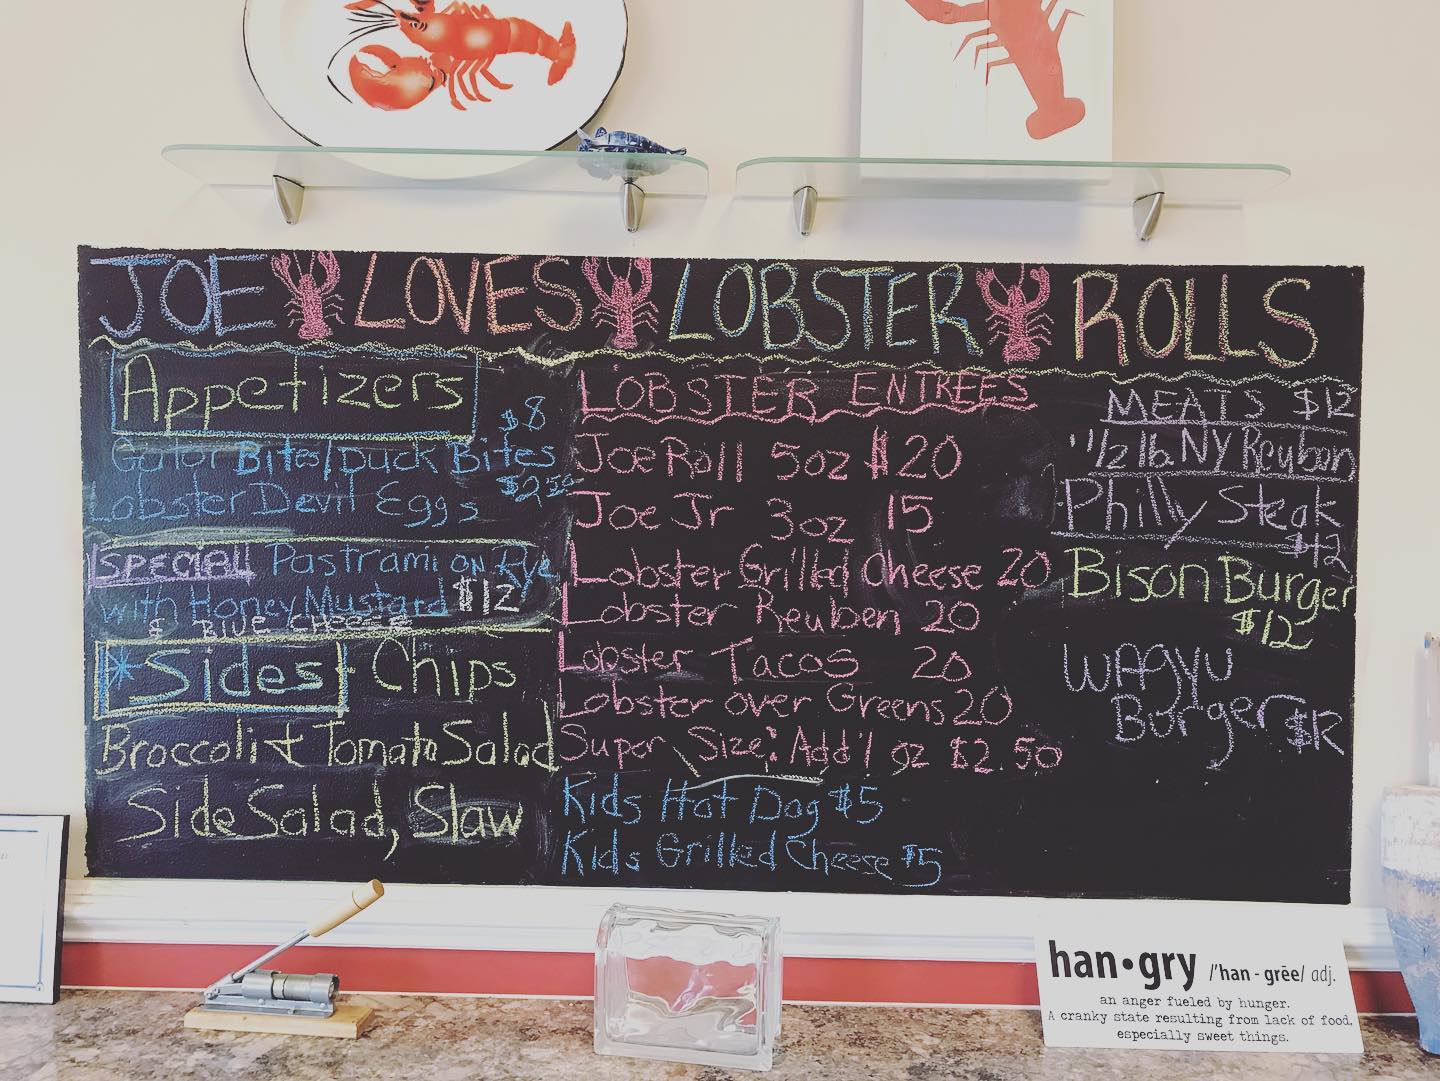 JOE LOVES LOBSTER ROLLS
Appetizers
$8
Gator Bites/Duck Bites
$2.50
Lobster Devil Eggs
SPECIAL! Pastrami on Rye
with Honey Mustard $12
& BLUE CHEESE
*Sides Chips
Broccoli & Tomato Salad
Side Salad, Slaw
LOBSTER ENTREES
Joe Roll 5oz $20
Joe Jr 3oz 15
Lobster Grilled Cheese 20
Lobster Reuben 20
Lobster Tacos 20
Lobster over Greens 20
Super Size: Add'l oz $2.50
Kids Hot Dog $5
Kids Grilled Cheese $5
MEATS $12
1/2 lb. NY Reuben
Philly Steak
$12
Bison Burger
$12
WAgyu
Burger $12
han•gry /'han - grēe/ adj.
an anger fueled by hunger.
A cranky state resulting from lack of food,
especially sweet things.